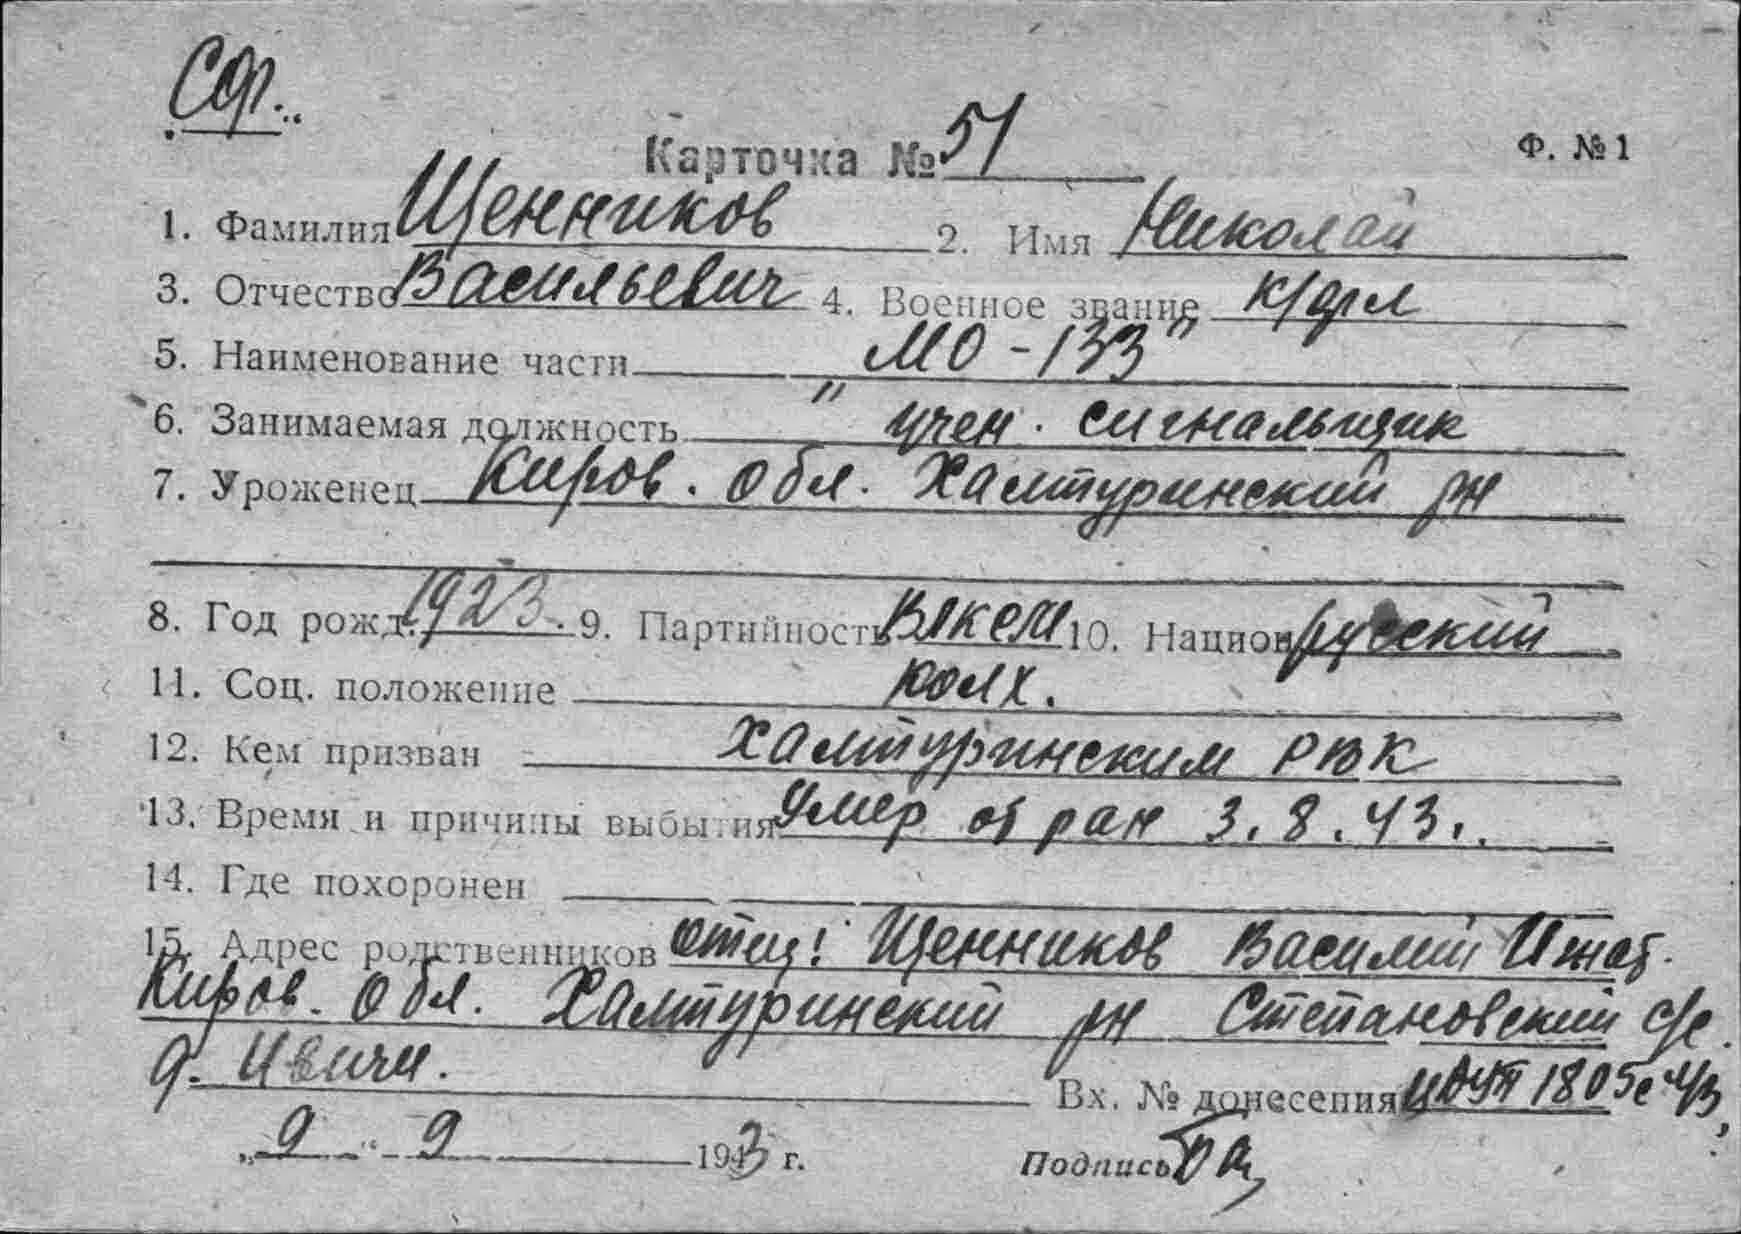 Сф.
Карточка № 51
Ф. № 1
1. Фамилия Щенников 2. Имя Николай
3. Отчество Васильевич 4. Военное звание к/фл
5. Наименование части "МО-133"
6. Занимаемая должность учен. сигнальщик
7. Уроженец Киров. обл. Халтуринский рн
8. Год рожд. 1923. 9. Партийность ВЛКСМ 10. Национ русский
11. Соц. положение колх.
12. Кем призван Халтуринским РВК
13. Время и причины выбытия Умер от ран 3.8.43.
14. Где похоронен
15. Адрес родственников отец: Щенников Василий Игнат.
Киров. обл. Халтуринский рн Степановский с/с.
д. Ивичи.
Вх. № донесения 1805с 43
„9“ 9 1943 г. Подпись